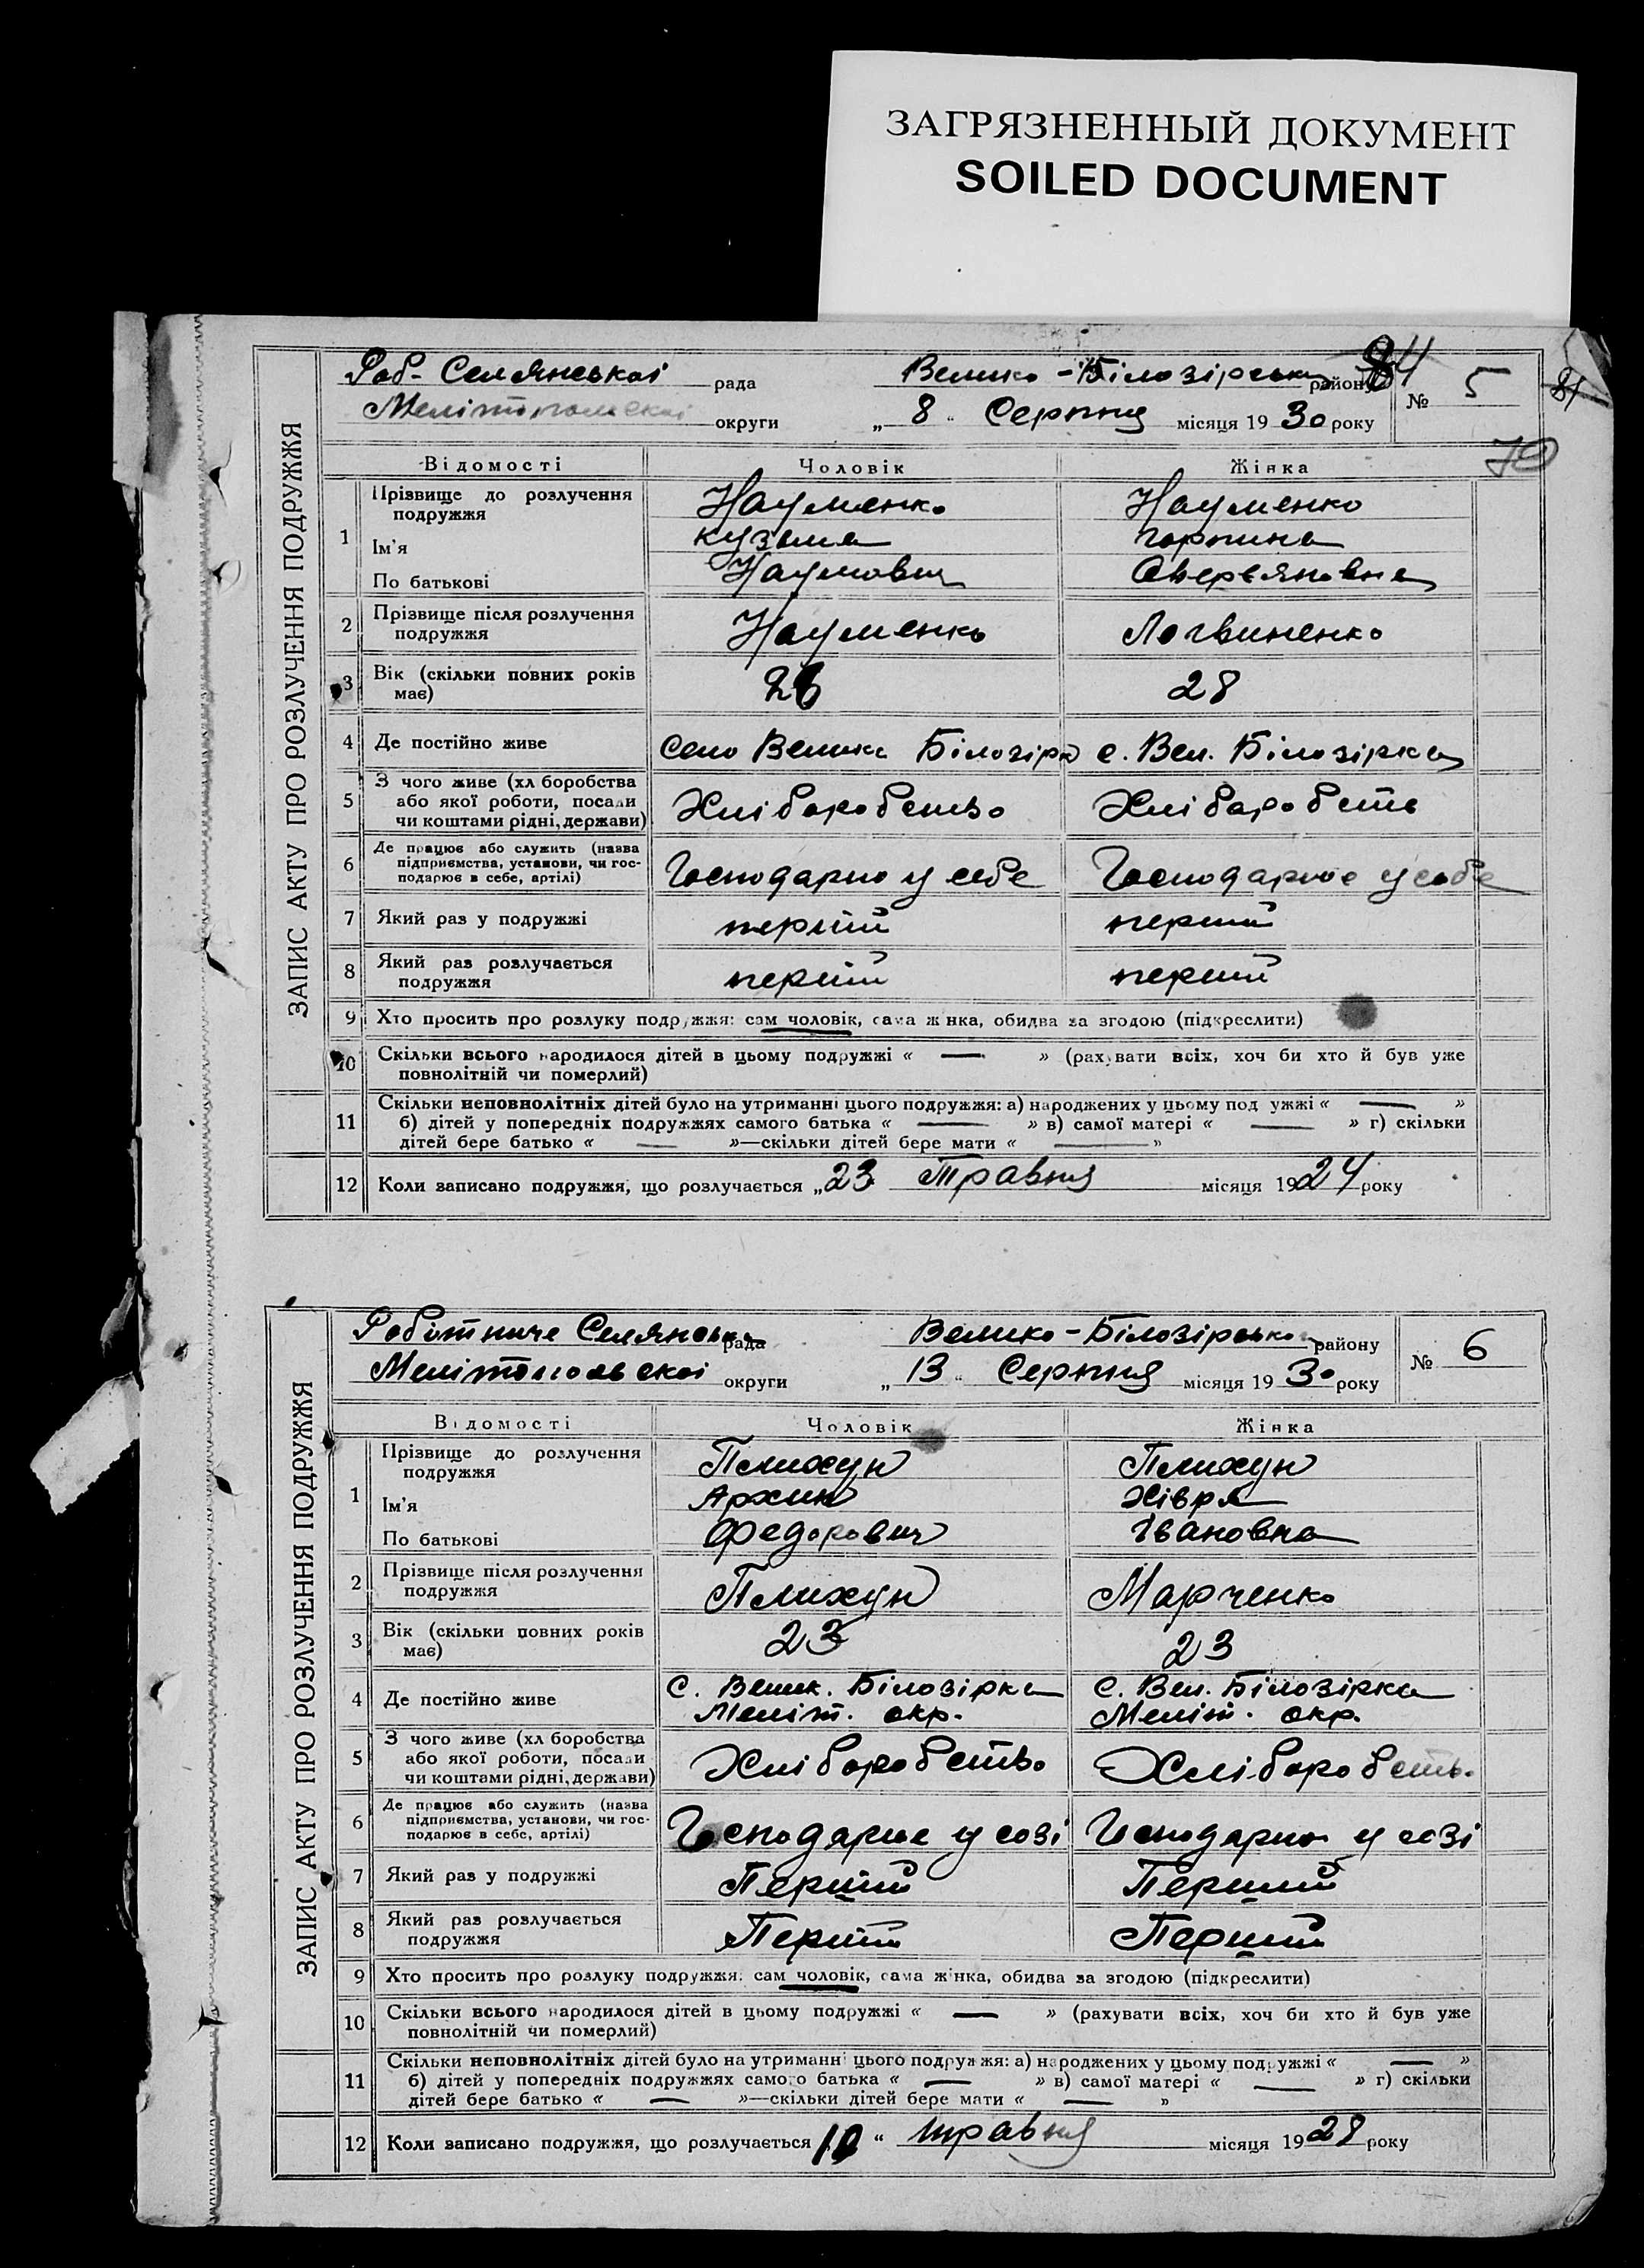 ЗАГРЯЗНЕННЫЙ ДОКУМЕНТ
SOILED DOCUMENT
ЗАПИС АКТУ ПРО РОЗЛУЧЕННЯ ПОДРУЖЖЯ
Роб- Селянської рада Велико-Білозірськ району № 5
Мелітопольскоі округи „ 8 " Серпня місяця 1930 року
70
Відомості Чоловік Жінка
1 Прізвище до розлучення подружжя Науменко Науменко
Ім'я Кузьма Горпина
По батькові Наумович Аверьяновна
2 Прізвище після розлучення подружжя Науменко Логвиненко
3 Вік (скільки повних років має) 26 28
4 Де постійно живе Село Велика Білозірка с. Вел. Білозірка
5 З чого живе (хл боробства або якої роботи, посади чи коштами рідні, держави) Хліборобство Хліборобств
6 Де працює або служить (назва підприємства, установи, чи господарює в себе, артілі) Господарює у себе Господарює у себе
7 Який раз у подружжі перший перший
8 Який раз розлучається подружжя перший перший
9 Хто просить про розлуку подружжя: сам чоловік, сама жінка, обидва за згодою (підкреслити)
10 Скільки всього народилося дітей в цьому подружжі « — » (рахувати всіх, хоч би хто й був уже
повнолітній чи померлий)
11 Скільки неповнолітніх дітей було на утриманні цього подружжя: а) народжених у цьому подружжі « — »
б) дітей у попередніх подружжях самого батька « — » в) самої матері « — » г) скільки
дітей бере батько « — »—скільки дітей бере мати « — »
12 Коли записано подружжя, що розлучається „23 Травня місяця 1924 року
ЗАПИС АКТУ ПРО РОЗЛУЧЕННЯ ПОДРУЖЖЯ
Роботниче Селянська рада Велико-Білозірсько району № 6
Мелітопольскоі округи „ 13 " Серпня місяця 1930 року
Відомості Чоловік Жінка
1 Прізвище до розлучення подружжя Плихун Плихун
Ім'я Архип Хівря
По батькові Федорович Івановна
2 Прізвище після розлучення подружжя Плихун Марченко
3 Вік (скільки повних років має) 23 23
4 Де постійно живе С. Велик. Білозірка С. Вел. Білозірка
Меліт. окр. Меліт. окр.
5 З чого живе (хл боробства або якої роботи, посади чи коштами рідні, держави) Хліборобство Хліборобств.
6 Де працює або служить (назва підприємства, установи, чи господарює в себе, артілі) Господарює у созі Господарює у созі
7 Який раз у подружжі Перший Перший
8 Який раз розлучається подружжя Перший Перший
9 Хто просить про розлуку подружжя: сам чоловік, сама жінка, обидва за згодою (підкреслити)
10 Скільки всього народилося дітей в цьому подружжі « — » (рахувати всіх, хоч би хто й був уже
повнолітній чи померлий)
11 Скільки неповнолітніх дітей було на утриманні цього подружжя: а) народжених у цьому подружжі « — »
б) дітей у попередніх подружжях самого батька « — » в) самої матері « — » г) скільки
дітей бере батько « — »—скільки дітей бере мати « — »
12 Коли записано подружжя, що розлучається 10 " травня місяця 1928 року